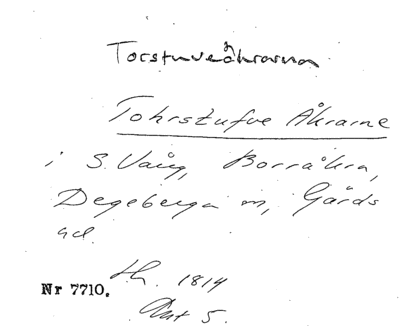 Torstuveåkrarna
Tohrstufve Åkrarne
i S. Vång, Borråkra,
Degeberga sn, Gärds
hd.
Sk. 1814
Nr 7710.
Akt 5.